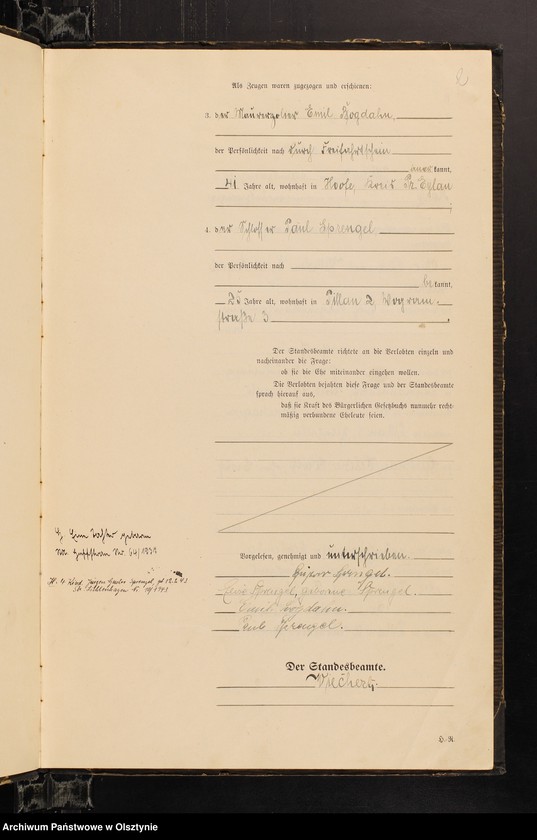 2
Als Zeugen waren zugezogen und erschienen:
3. der Maurerpolier Emil Bogdahn,
der Persönlichkeit nach durch Freifahrtschein
anerkannt,
41 Jahre alt, wohnhaft in Hoofe, Kreis Pr. Eylau
;
4. der Schlosser Paul Sprengel
der Persönlichkeit nach
be kannt,
25 Jahre alt, wohnhaft in Pillau 2, Wogram-
straße 3.
Der Standesbeamte richtete an die Verlobten einzeln und
nacheinander die Frage:
ob sie die Ehe miteinander eingehen wollen.
Die Verlobten bejahten diese Frage und der Standesbeamte
sprach hierauf aus,
daß sie kraft des Bürgerlichen Gesetzbuchs nunmehr recht-
mäßig verbundene Eheleute seien.
1, Eine Tochter geboren
Nr. 64/1931
Vorgelesen, genehmigt und unterschrieben.
Gustav Sprengel.
Sprengel, geborene Sprengel.
Emil Bogdahn.
Paul Sprengel.
Der Standesbeamte.
H.-R.
Archiwum Państwowe w Olsztynie